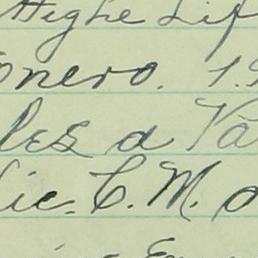 Highe Lif
onero. 1.
les a Va
lic. C. M. o